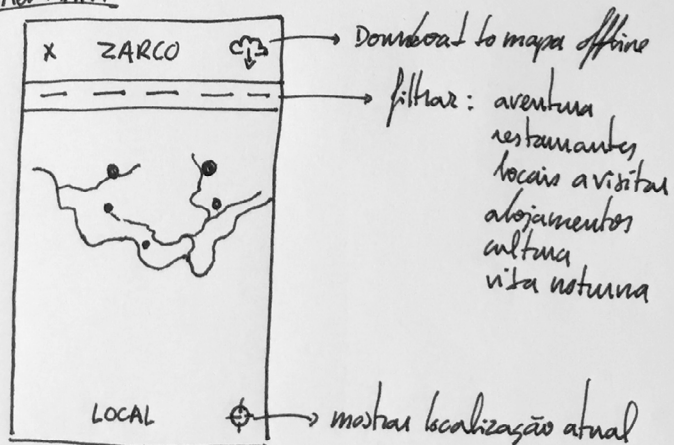 X ZARCO
Download do mapa offline
filtrar: aventura
restaurantes
locais a visitar
alojamentos
cultura
vida noturna
LOCAL
mostrar localização atual